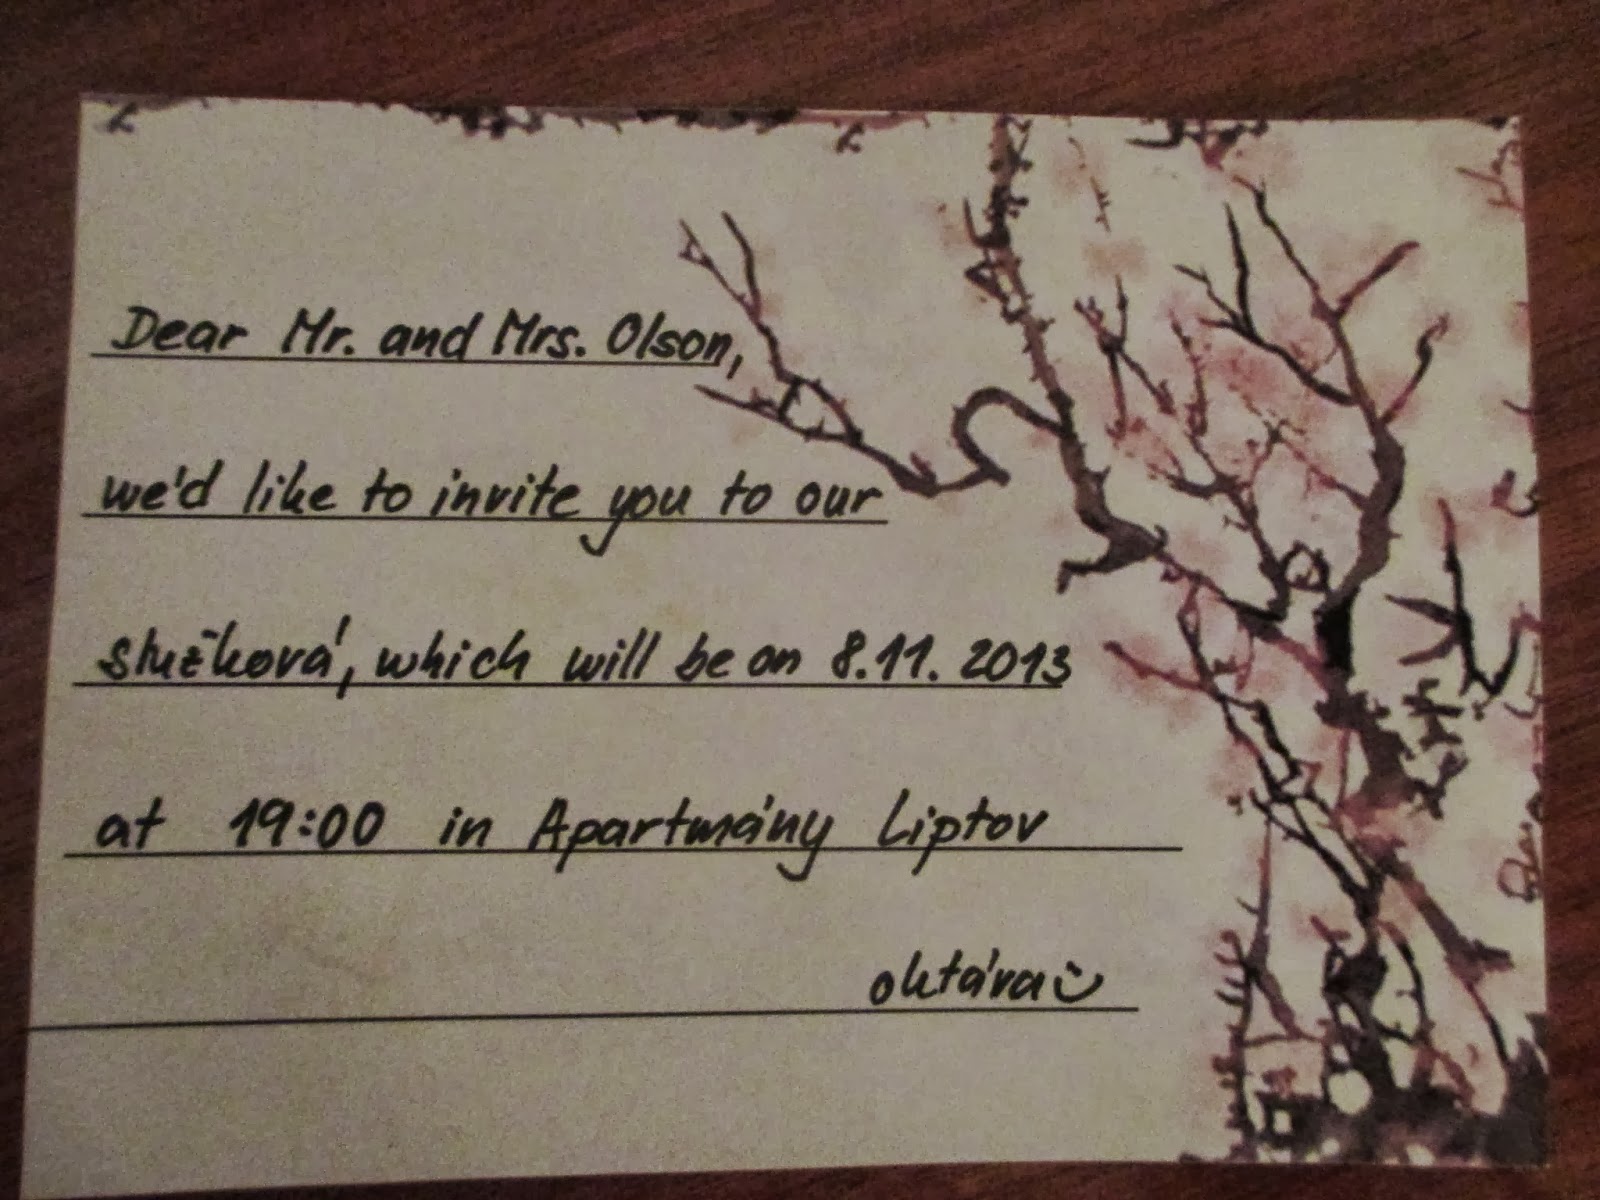 Dear Mr. and Mrs. Olson,
we'd like to invite you to our
stužková, which will be on 8.11. 2013
at 19:00 in Apartmány Liptov
oktáva